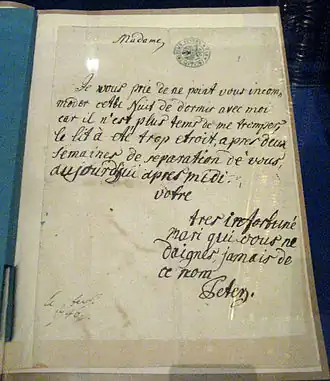 Madame
Je vous prie de ne point vous incom,
moder cette Nuit de dormir avec moi
car il n'est plus tems de me tromper,
le lit a été trop etroit, apres deux
semaines de separation de vous,
aujourd'hui apres midi.
votre
tres infortuné
mari qui vous ne
daignez jamais de
ce nom
Peter.